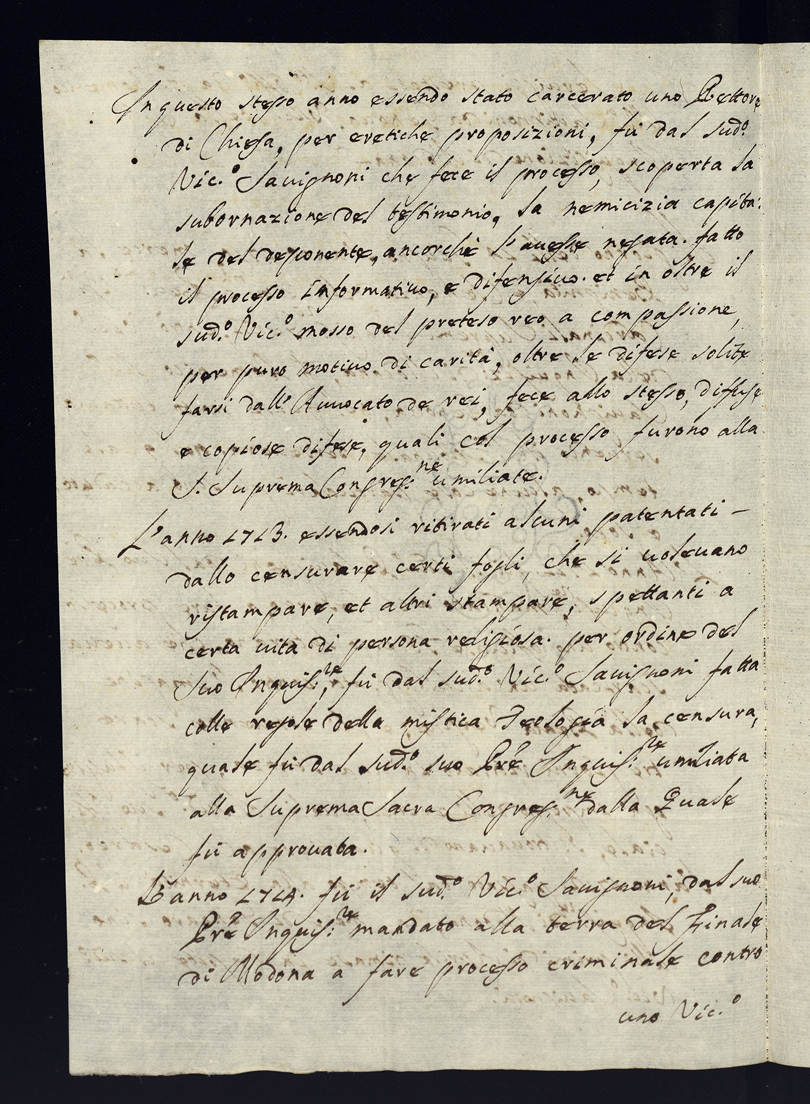 In questo stesso anno essendo stato carcerato uno Rettore
di Chiesa, per eretiche proposizioni, fù dal sud.º
Vic.º Sauignoni che fece il processo, scoperta la
subornazione del testimonio, la nemicizia capita:
le del deponente, ancorchè l'auesse negata. fatto
il processo informatiuo, e difensiuo. et in oltre il
sud.º Vic.º mosso del preteso reo a compassione,
per puro motiuo di carità, oltre le difese solite
farsi dall'Auuocato de rei, fece allo stesso, diffuse
e copiose difese, quali col processo furono alla
S. Suprema Congreg.ne umiliate.
L'anno 1713. essendosi ritirati alcuni patentati –
dallo censurare certi fogli, che si uoleuano
ristampare, et altri stampare, spettanti a
certa uita di persona religiosa. per ordine del
suo Inquis.re, fù dal sud.º Vic.º Sauignoni fatta
colle regole della mistica Teologia la censura,
quale fù dal sud.º suo Prê Inquis.re umiliata
alla Suprema Sacra Congreg.ne dalla Quale
fù approuata.
L'anno 1714. fù il sud.º Vic.º Sauignoni, dal suo
Prê Inquis.re mandato alla terra del Finale
di Modona a fare processo criminale contro
uno Vic.º